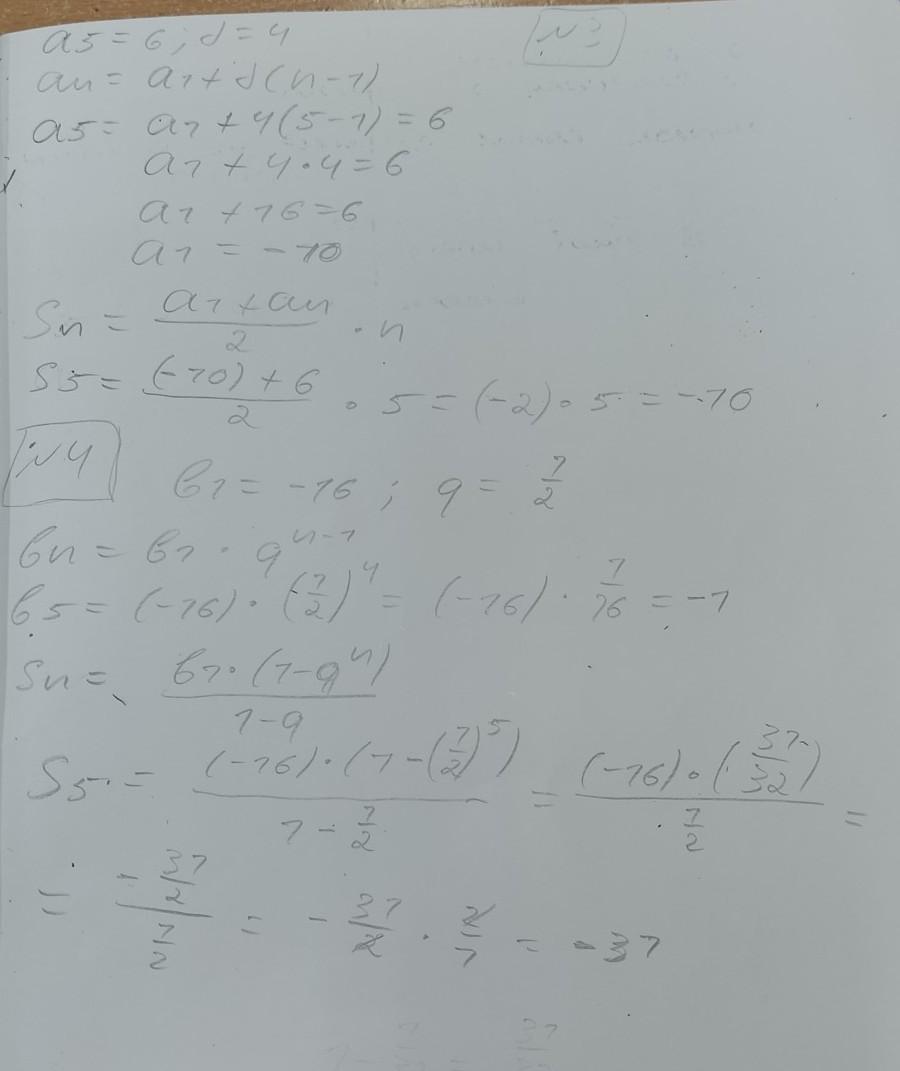 №3
a5 = 6; d = 4
an = a1 + d(n-1)
a5 = a1 + 4(5-1) = 6
a1 + 4·4 = 6
a1 + 16 = 6
a1 = -10
Sn = (a1 + an)/2 · n
S5 = ((-10) + 6)/2 · 5 = (-2) · 5 = -10
№4
b1 = -16 ; q = 1/2
bn = b1 · q^(n-1)
b5 = (-16) · (1/2)^4 = (-16) · 1/16 = -1
Sn = (b1 · (1-q^n))/(1-q)
S5 = ((-16) · (1-(1/2)^5))/(1 - 1/2) = ((-16) · (31/32))/(1/2) =
= (-31/2)/(1/2) = - 31/2 · 2/1 = -31